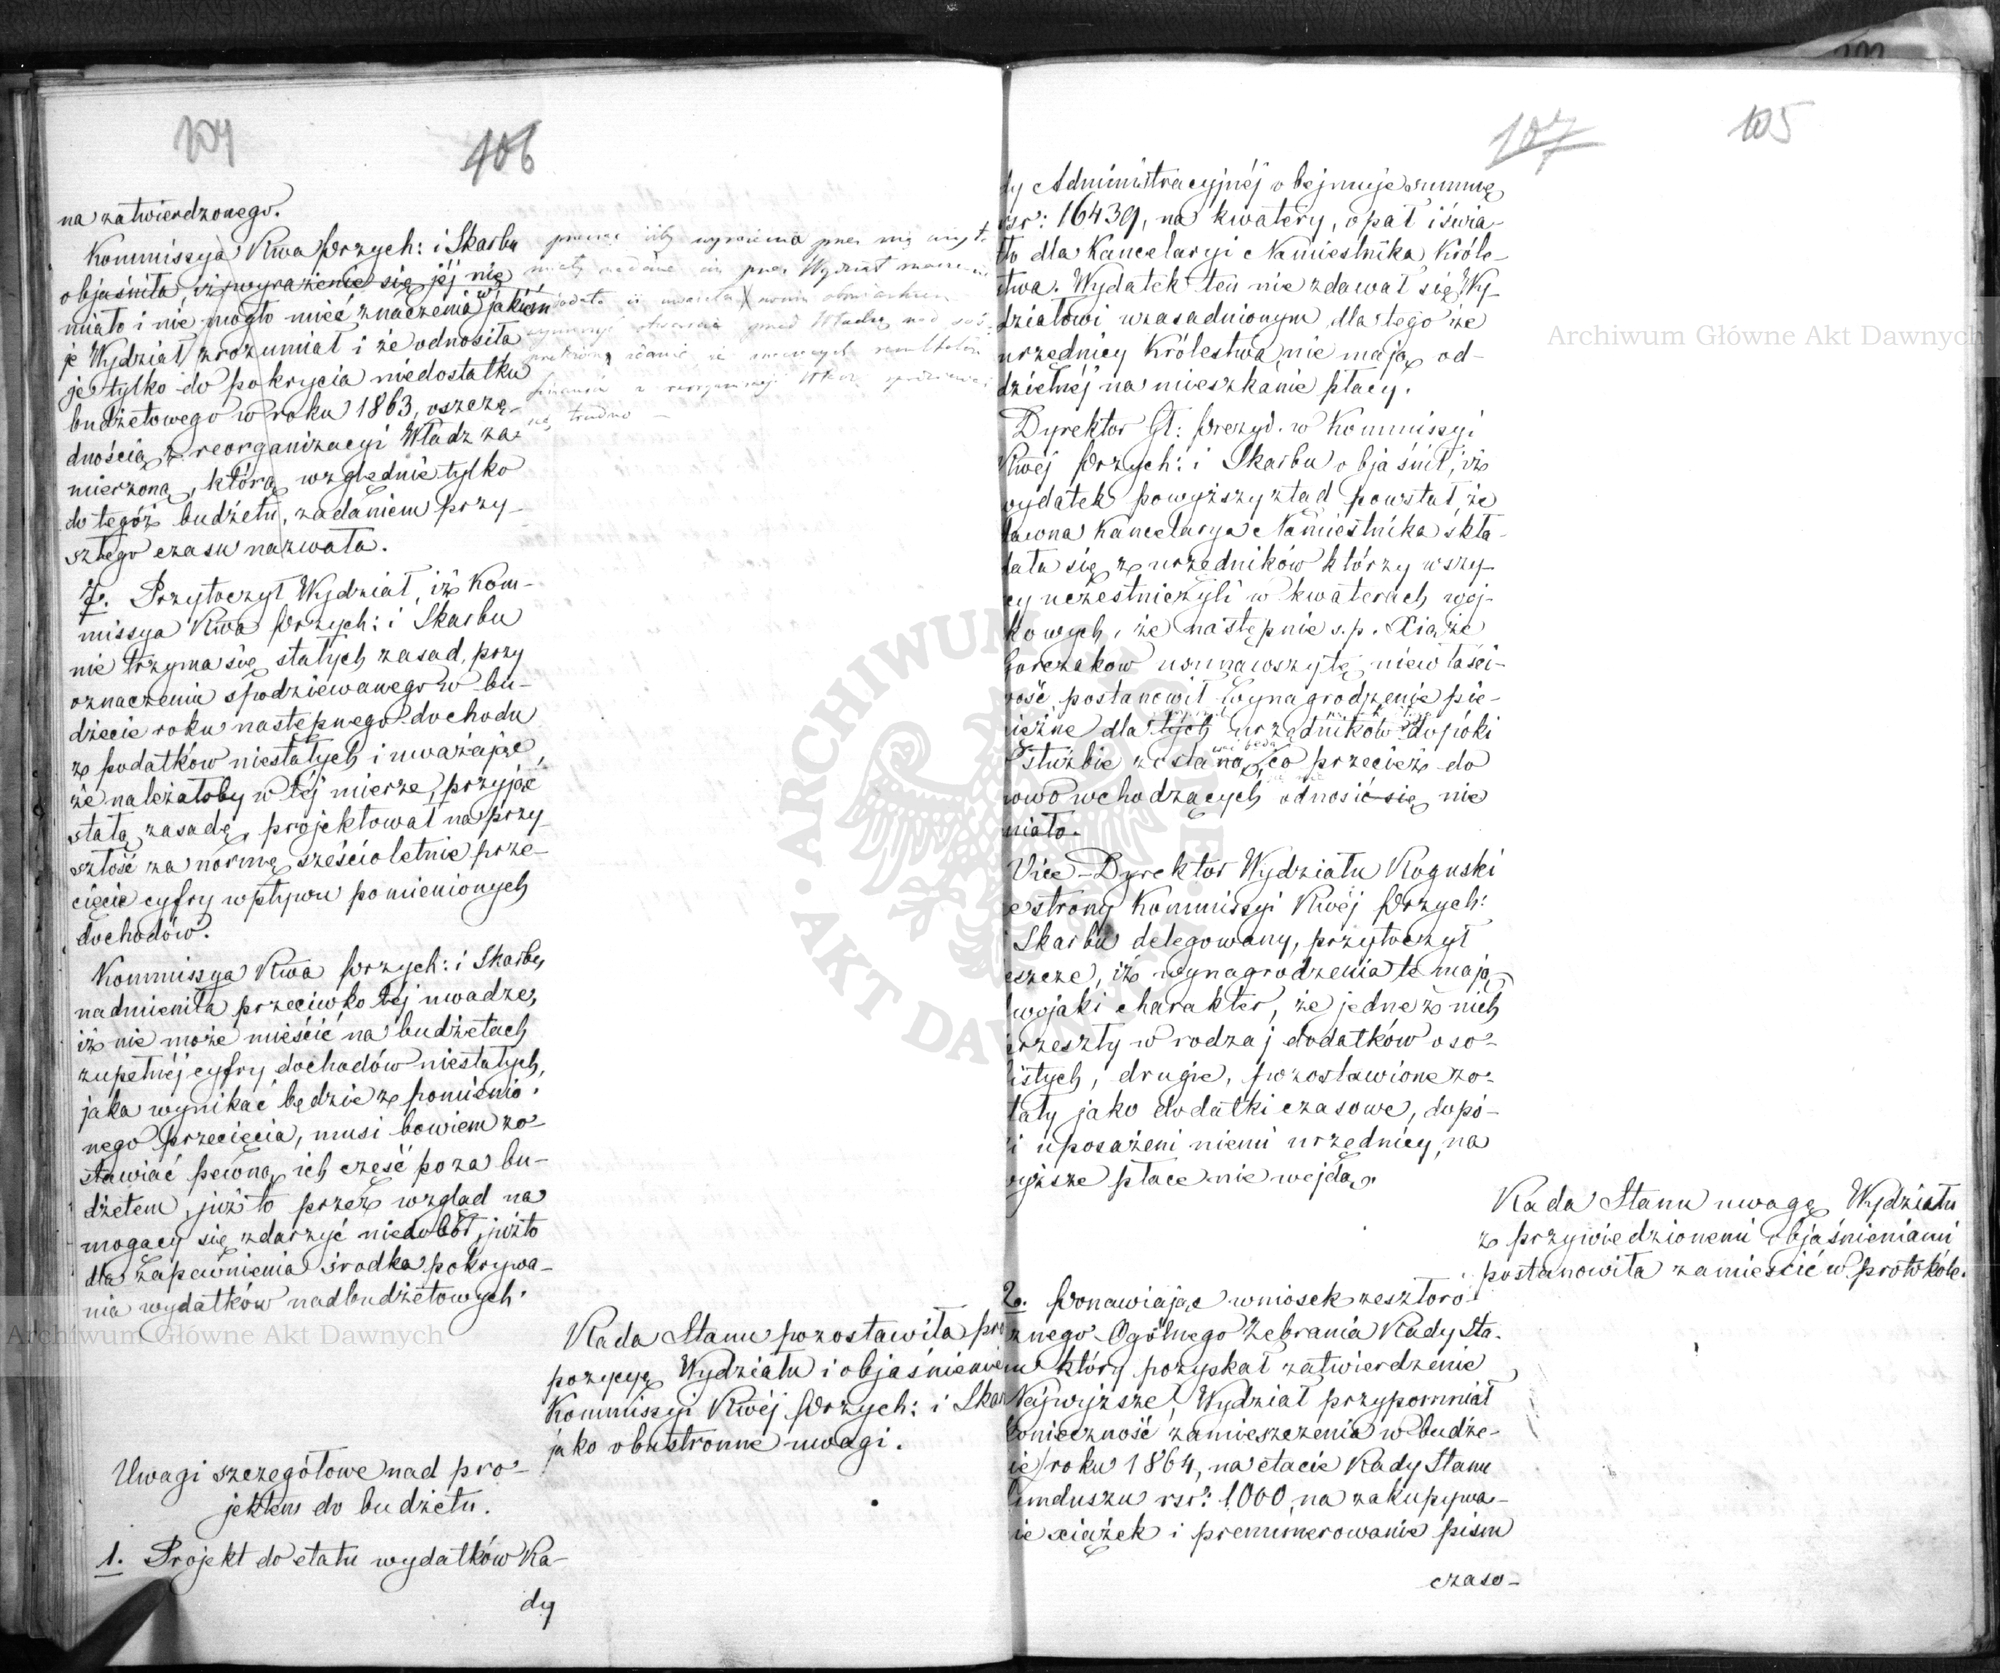 104
106
na zatwierdzonego.
Kommissya Rwa Przych: i Skarbu
objaśniła, iż wyrażenie się jéj nie
miało i nie mogło mieć znaczenia w jakiém
je Wydział zrozumiał i że odnosiła
je tylko do pokrycia niedostatku
budżetowego w roku 1863, oszczę-
dnością z reorganizacyi Władz za-
mierzoną, którą względnie tylko
do tegóż budżetu, zadaniem przy-
szłego czasu nazwała.
7. Przytoczył Wydział, iż Kom-
missya Rwa Przych: i Skarbu
nie trzyma się stałych zasad, przy
oznaczeniu spodziewanego w bu-
dżecie roku następnego dochodu
z podatków niestałych i uważając,
że należałoby w téj mierze, przyjąć
stałą zasadę, projektował na przy-
szłość za normę sześcioletnie prze-
cięcie cyfry wpływu pomienionych
dochodów.
Kommissya Rwa Przych: i Skarbu,
nadmieniła przeciwko téj uwadze,
iż nie może mieścić na budżetach
zupełnéj cyfry dochodów niestałych,
jaka wynikać będzie z pomienio-
nego przecięcia, musi bowiem zo-
stawiać pewną ich cześć poza bu-
dżetem, już to przez wzgląd na
mogący się zdarzyć niedobór, jużto
dla zapewnienia środka pokrywa-
nia wydatków nadbudżetowych.
Rada Stanu pozostawiła pro
pozycyę Wydziału i objaśnienie
Kommissyi Rwéj Przych: i Skar
jako obustronne uwagi.
Uwagi szczegółowe nad pro-
jektem do budżetu.
1. Projekt do etatu wydatków Ra-
dy
107
105
dy Administracyjnéj obejmuje summę
rsr: 16439, na kwatery, opał i świa-
tło dla Kancelaryi Namiestnika Króle-
stwa. Wydatek ten nie zdawał się Wy-
działowi uzasadnionym dla tego że
urzędnicy Królestwa nie mają od-
dzielnéj na mieszkanie płacy.
Dyrektor Gł: Prezyd. w Kommissyi
Rwéj Przych: i Skarbu objaśnił, iż
wydatek powyższy ztąd powstał, że
dawna Kancelarya Namiestnika skła-
dała się z urzędników którzy wszy-
cy uczestniczyli w kwaterach woj-
kowych, że następnie s.p. Xiąże
Gorczakow usunąwszy tę niewłaści-
wość postanowił wynagrodzenie pie-
niężne dla tych urzędników dopóki
służbie zostaną, co przecież do
nowo wchodzących odnosić się nie
miało.
Vice-Dyrektor Wydziału Roguski
ze strony Kommissyi Rwéj Przych:
Skarbu delegowany, przytoczył
eszcze, iż wynagrodzenia te mają
dwojaki charakter, że jedne z nich
przeszły w rodzaj dodatków oso-
istych, drugie, pozostawione zo-
tały jako dodatki czasowe, dopó-
i uposażeni niemi urzędnicy, na
wyższe płace nie wejdą.
Rada Stanu uwagę Wydziału
z przywiedzionemi objaśnieniami
postanowiła zamieścić w protokóle.
2. Ponawiając wniosek zeszłoro-
znego Ogólnego Zebrania Rady Sta-
u który pozyskał zatwierdzenie
Najwyższe, Wydział przypomniał
konieczność zamieszczenia w budże-
ie roku 1864, na etacie Rady Stanu
funduszu rsr: 1000, na zakupywa-
ie xiążek i prenumerowanie pism
czaso-
Archiwum Główne Akt Dawnych
Archiwum Główne Akt Dawnych
ARCHIWUM GŁÓWNE AKT DAWNYCH